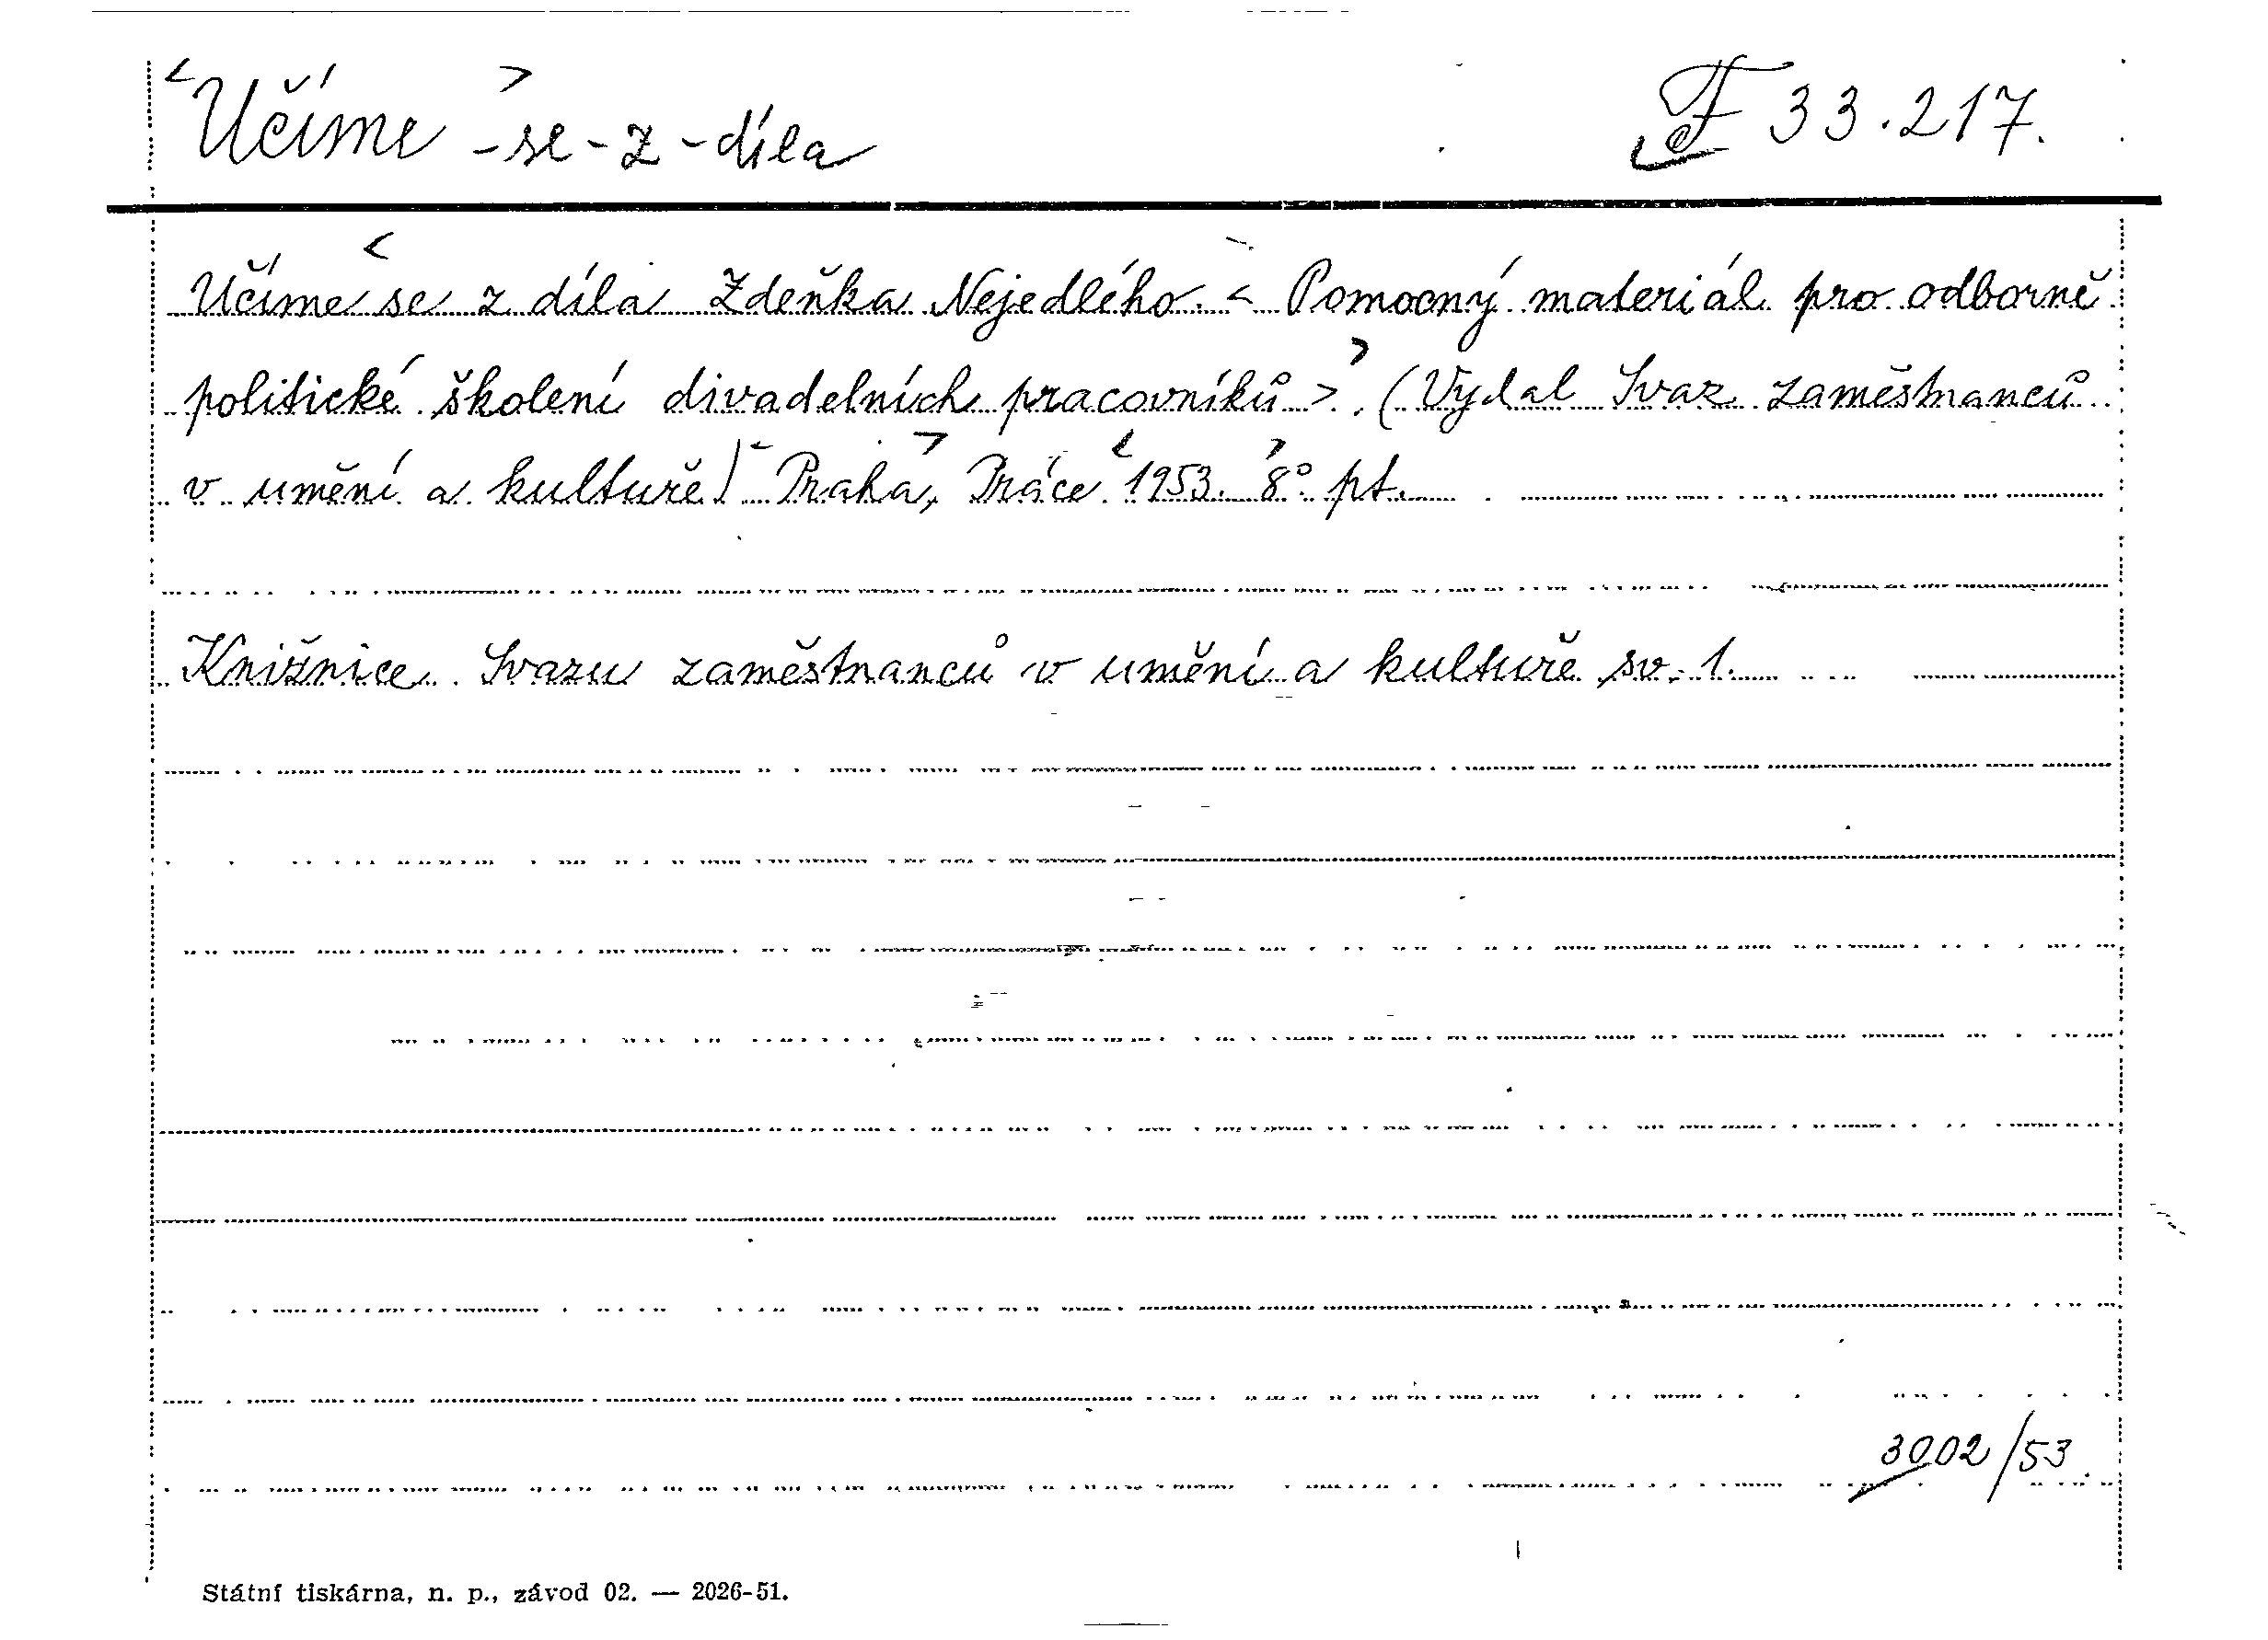 <Učíme> -se-z-díla F 33.217.
Učíme se z díla Zdeňka Nejedlého. < Pomocný materiál pro odborně
politické školení divadelních pracovníků >. (Vydal Svaz zaměstnanců
v umění a kultuře) Praha, Práce 1953. 8° pt.
Knižnice Svazu zaměstnanců v umění a kultuře sv. 1.
3002/53
Státní tiskárna, n. p., závod 02. — 2026-51.